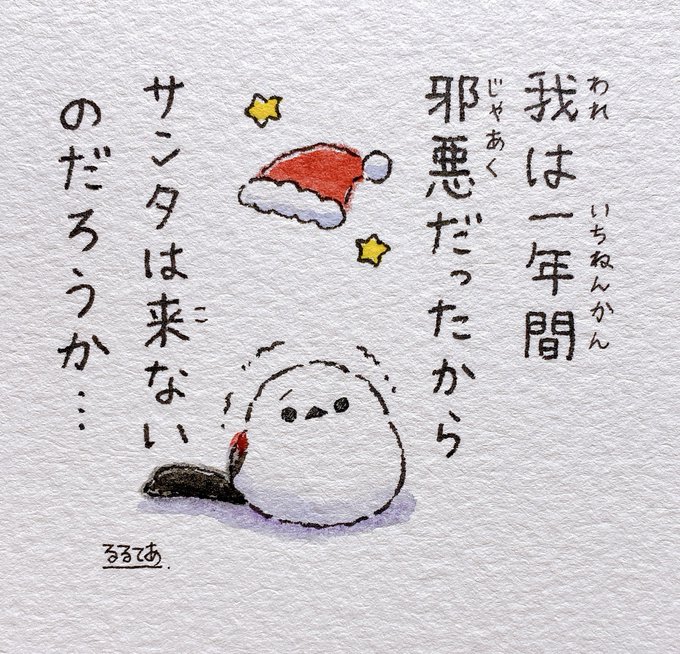 我は一年間
邪悪だったから
サンタは来ない
のだろうか…
われ
いちねんかん
じゃあく
こ
るるてあ